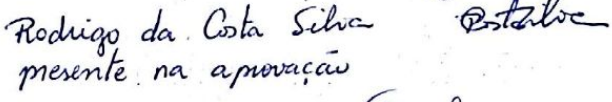 Rodrigo da Costa Silva
presente na aprovação